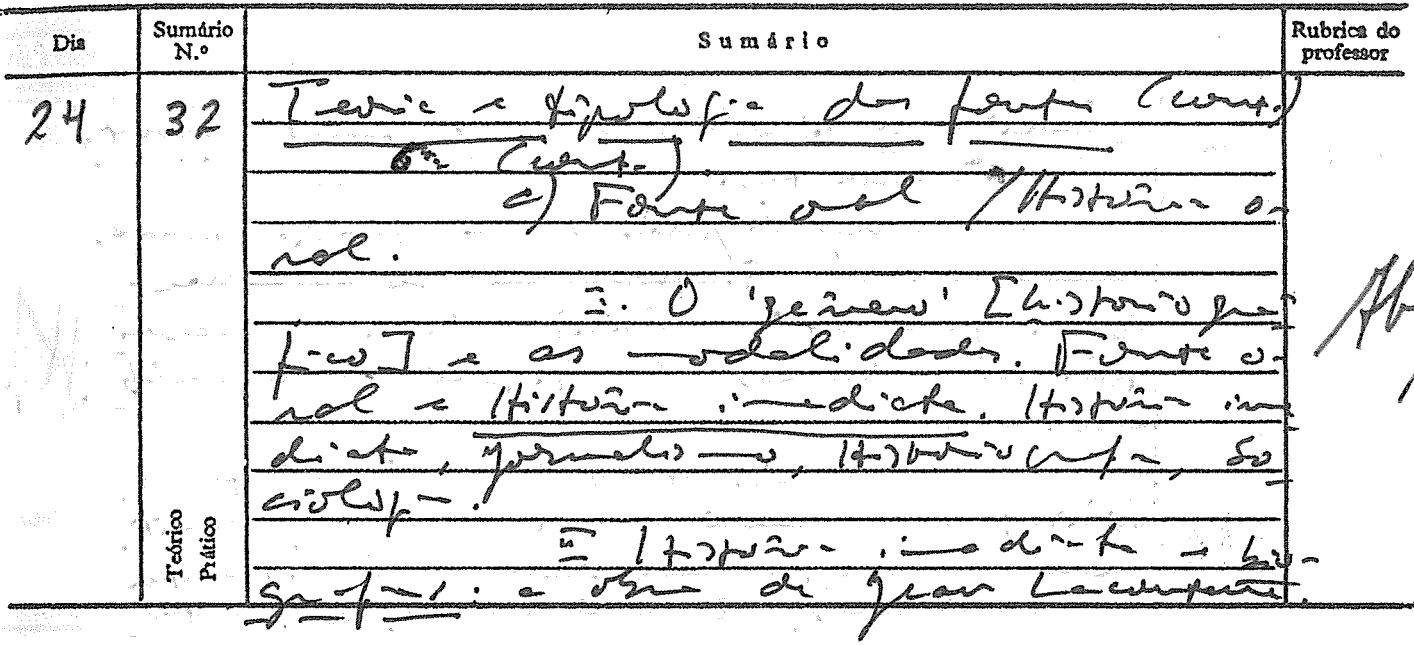 Dia Sumário N.º Sumário Rubrica do professor
24 32 Teoria e tipologia das fontes (cont.)
(cont.).
c) Fonte oral / História o-
ral.
I. O 'género' [historiográ-
fico] e as modalidades. Fonte o-
ral e História imediata. História ime
diata, jornalismo, Historiografia, So
ciologia.
II História imediata e bio-
grafias: a obra de Jean Lacouture.
Teórico
Prático